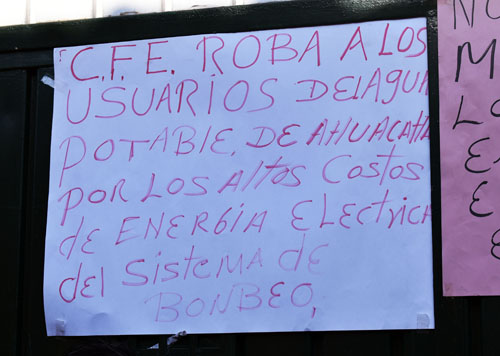 C.F.E. ROBA A LOS
USUARIOS DELAGUA
POTABLE, DE AHUACATLA
POR LOS Altos Costos
de ENERGIA ELEctrica
del SistemA de
BONBEO,
NO
M
LO
E
E
E